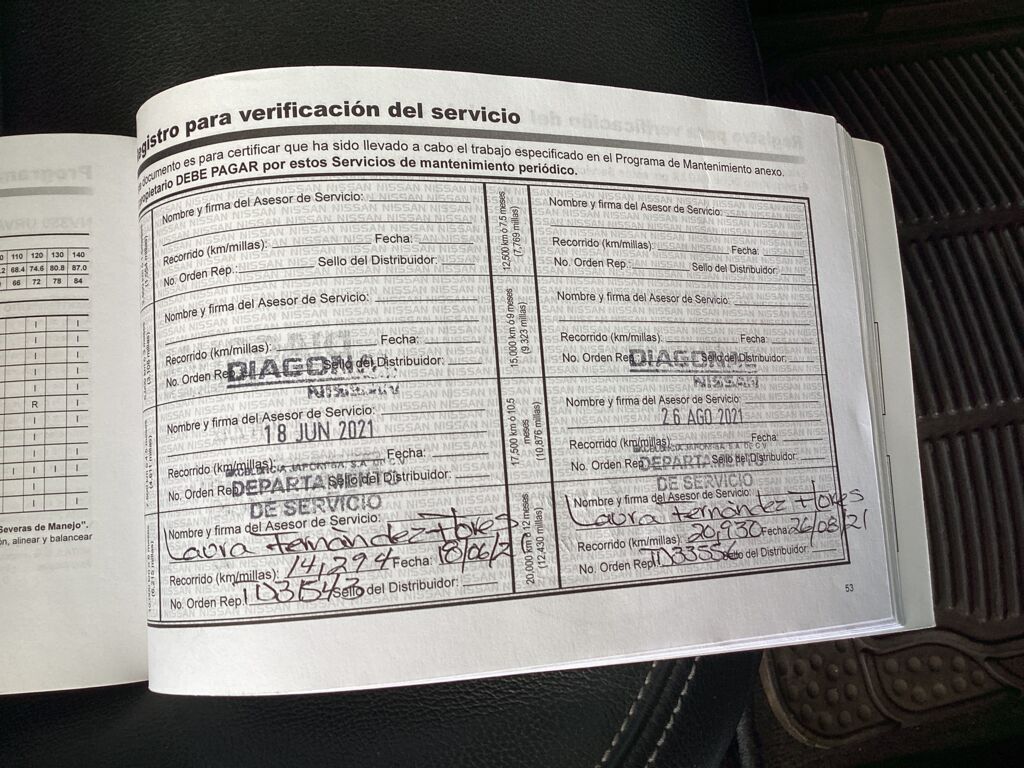 110 120 130 140
68.4 74.6 80.8 87.0
66 72 78 84
I I
I I
I I
I I
I I
R I
I I
I I
I I
I I
I I
Severas de Manejo".
alinear y balancear
Registro para verificación del servicio
documento es para certificar que ha sido llevado a cabo el trabajo especificado en el Programa de Mantenimiento anexo.
propietario DEBE PAGAR por estos Servicios de mantenimiento periódico.
Nombre y firma del Asesor de Servicio:
Recorrido (km/millas): Fecha:
No. Orden Rep.: Sello del Distribuidor:
Nombre y firma del Asesor de Servicio:
Recorrido (km/millas): Fecha:
No. Orden Rep Sello del Distribuidor:
NISSAN
Nombre y firma del Asesor de Servicio:
18 JUN 2021
Recorrido (km/millas): Fecha:
No. Orden Rep Sello del Distribuidor:
DEPARTAMENTO
DE SERVICIO
Nombre y firma del Asesor de Servicio:
Laura Fernández Flores
Recorrido (km/millas): 14,294 Fecha: 18/06/2
No. Orden Rep. ID31543 Sello del Distribuidor:
12,500 km ó 7.5 meses
(7,769 millas)
15,000 km ó 9 meses
(9,323 millas)
17,500 km ó 10.5
meses
(10,876 millas)
20,000 km ó 12 meses
(12,430 millas)
Nombre y firma del Asesor de Servicio:
Recorrido (km/millas): Fecha:
No. Orden Rep.: Sello del Distribuidor:
Nombre y firma del Asesor de Servicio:
Recorrido (km/millas): Fecha:
No. Orden Rep Sello del Distribuidor:
NISSAN
Nombre y firma del Asesor de Servicio:
26 AGO 2021
Recorrido (km/millas): Fecha:
No. Orden Rep Sello del Distribuidor:
DEPARTAMENTO
DE SERVICIO
Nombre y firma del Asesor de Servicio:
Laura Fernández Flores
Recorrido (km/millas): 20,930 Fecha: 26/08/21
No. Orden Rep. ID33556 Sello del Distribuidor:
53